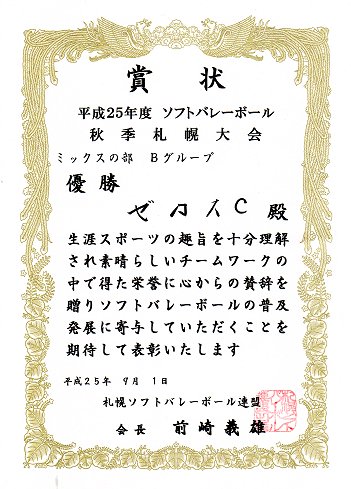 賞状
平成25年度 ソフトバレーボール
秋季札幌大会
ミックスの部 Bグループ
優勝
ゼロ人C 殿
生涯スポーツの趣旨を十分理解
され素晴らしいチームワークの
中で得た栄誉に心からの賛辞を
贈りソフトバレーボールの普及
発展に寄与していただくことを
期待して表彰いたします
平成25年 9月 1日
札幌ソフトバレーボール連盟
会長 前崎義雄